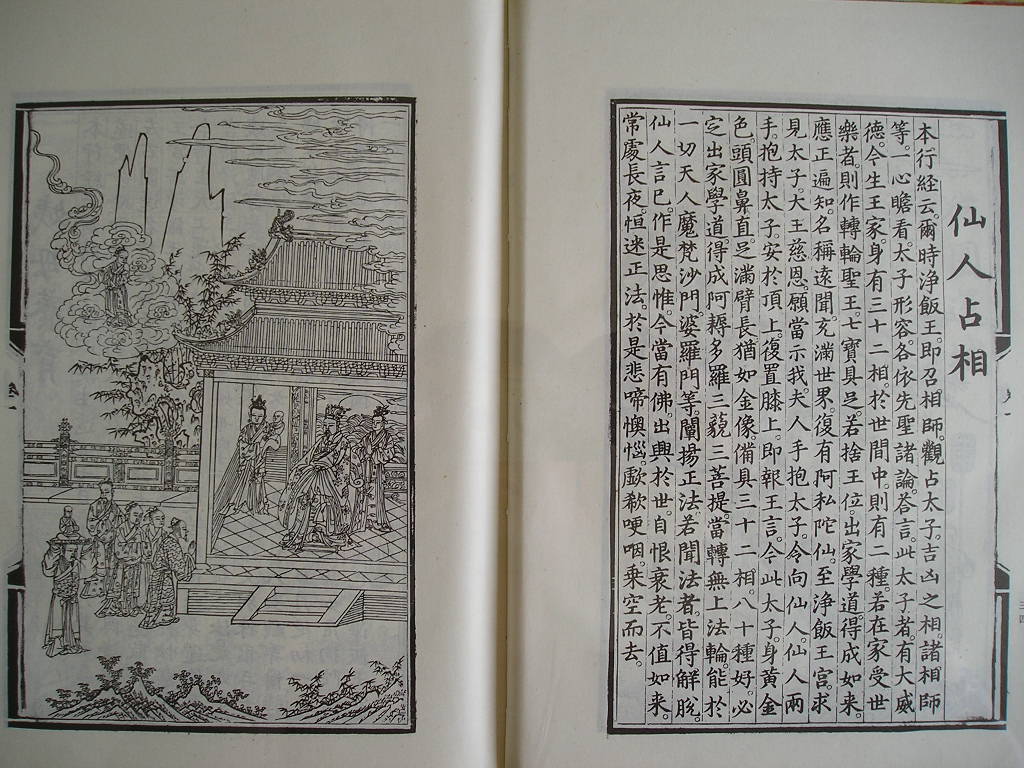 仙人占相
本行経云。爾時浄飯王。即召相師。觀占太子。吉凶之相。諸相師
等。一心瞻看。太子形容。各依先聖諸論。答言。此太子者。有大威
德。今生王家。身有三十二相。於世間中。則有二種。若在家受世
樂者。則作轉輪聖王。七寶具足。若捨王位。出家學道。得成如來。
應正遍知。名稱遠聞。充滿世界。復有阿私陀仙。至淨飯王宮。求
見太子。大王慈恩。願當示我。夫人手抱太子。令向仙人。仙人兩
手。抱持太子。安於頂上。復置膝上。即報王言。今此太子。身黃金
色。頭圓鼻直。足滿臂長。猶如金像。備具三十二相。八十種好。必
定出家學道。得成阿耨多羅三藐三菩提。當轉無上法輪。能於
一切天人魔梵沙門。婆羅門等。闡揚正法。若聞法者。皆得解脫。
仙人言已。作是思惟。今當有佛。出興於世。自恨衰老。不值如來。
常處長夜。恒迷正法。於是悲啼懊惱。歔欷哽咽。乘空而去。